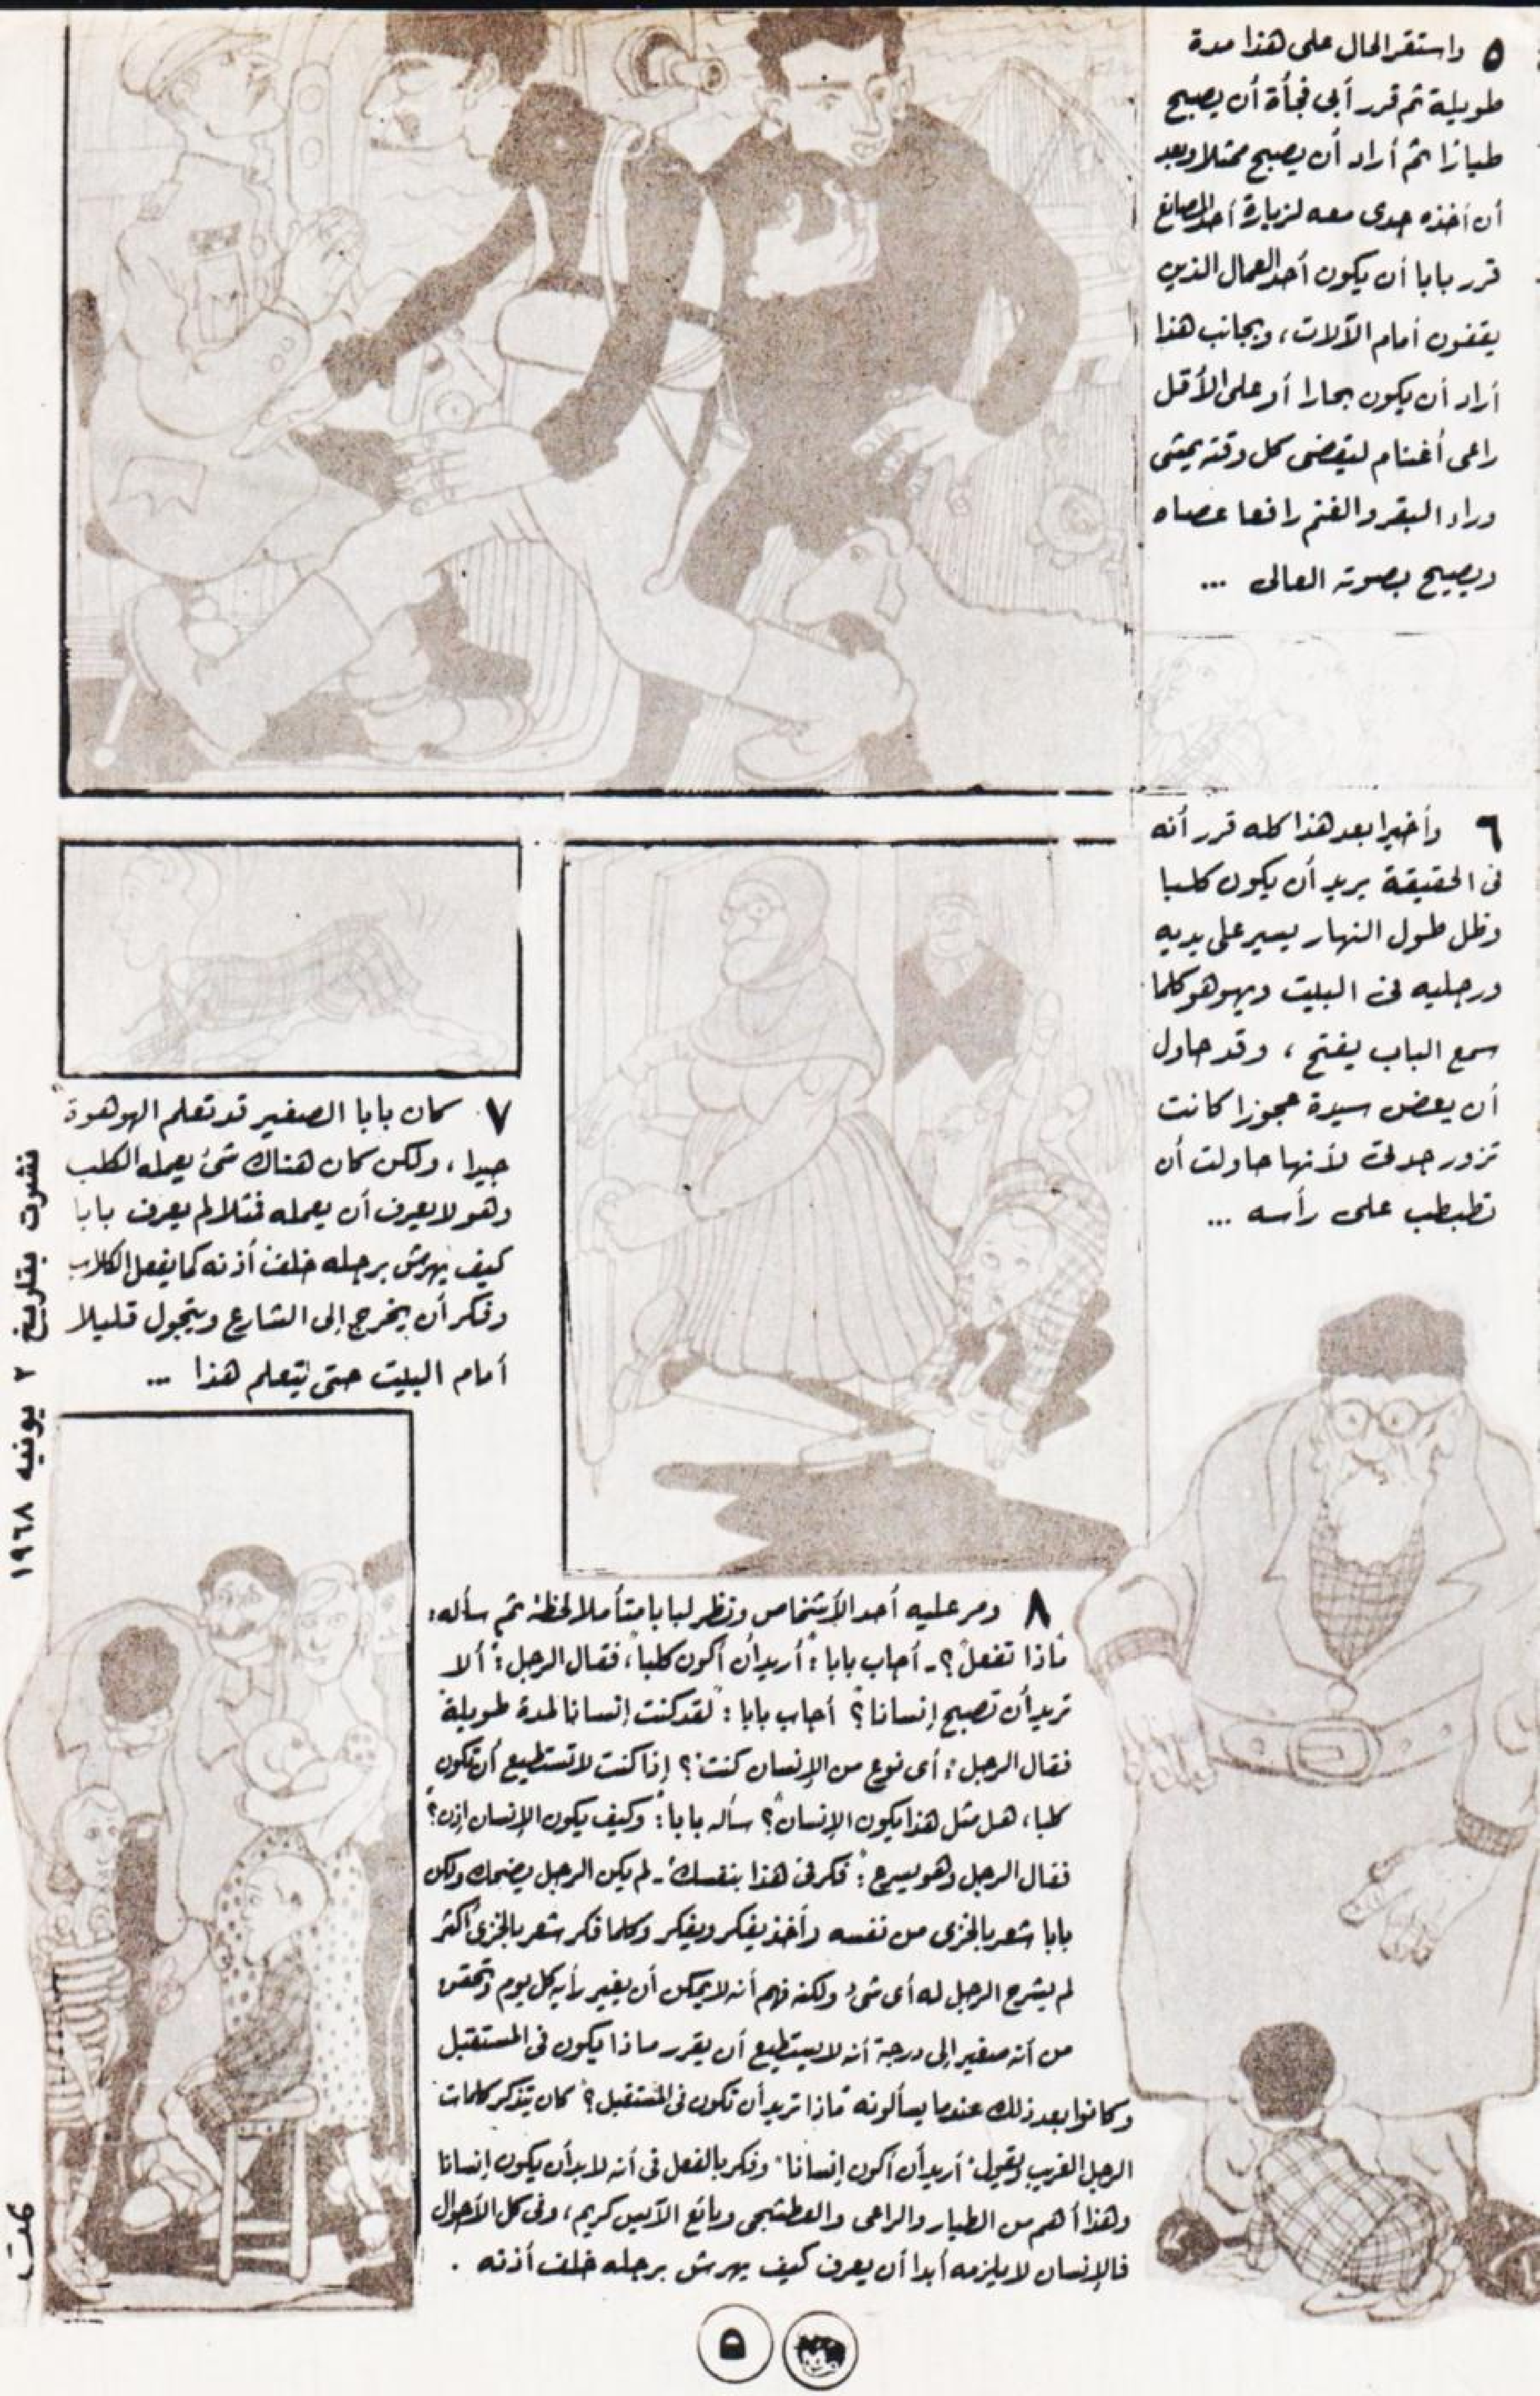 ٥ واستقر الحال على هذا مدة
طويلة ثم قرر أبى فجأة أن يصبح
طيارًا ثم أراد أن يصبح ممثلا وبعد
أن أخذه جدى معه لزيارة أحد المصانع
قرر بابا أن يكون أحد العمال الذين
يقفون أمام الآلات، وبجانب هذا
أراد أن يكون بحارا أو على الأقل
راعى أغنام ليقضى كل وقته يمشى
وراء البقر والغنم رافعا عصاه
ويصيح بصوته العالى ...
٦ وأخيرا بعد هذا كله قرر أنه
فى الحقيقة يريد أن يكون كلبا
وظل طول النهار يسير على يديه
ورجليه فى البيت ويهوهو كلما
سمع الباب يفتح، وقد حاول
أن يعض سيدة عجوزا كانت
تزور جدتى لأنها حاولت أن
تطبطب على رأسه ...
٧ كان بابا الصغير قد تعلم الهوهوة
جيدا، ولكن كان هناك شئ يعمله الكلب
وهو لا يعرف أن يعمله فمثلا لم يعرف بابا
كيف يهرش برجله خلف أذنه كما يفعل الكلاب
وفكر أن يخرج إلى الشارع ويتجول قليلا
أمام البيت حتى يتعلم هذا ...
٨ ومر عليه أحد الأشخاص ونظر لبابا متأملا لحظة ثم سأله:
"ماذا تفعل"؟ ـ أجاب بابا: "أريد أن أكون كلبا"، فقال الرجل: "ألا
تريد أن تصبح إنسانا"؟ أجاب بابا: "لقد كنت إنسانا لمدة طويلة"
فقال الرجل: "أى نوع من الإنسان كنت"؟ إذا كنت لا تستطيع أن تكون
كلبا، هل مثل هذا يكون الإنسان"؟ سأله بابا: "وكيف يكون الإنسان إذن"؟
فقال الرجل وهو يسرع: "فكر فى هذا بنفسك" ـ لم يكن الرجل يضحك ولكن
بابا شعر بالخزى من نفسه وأخذ يفكر ويفكر وكلما فكر شعر بالخزى أكثر
لم يشرح الرجل له أى شئ ولكنه فهم أنه لا يمكن أن يغير رأيه كل يوم وتحقق
من أنه صغير إلى درجة أنه لا يستطيع أن يقرر ماذا يكون فى المستقبل
وكانوا بعد ذلك عندما يسألونه "ماذا تريد أن تكون فى المستقبل؟" كان يتذكر كلمات
الرجل الغريب ويقول "أريد أن أكون إنسانا" وفكر بالفعل فى أنه لا بد أن يكون إنسانا
وهذا أهم من الطيار والراعى والعطشجى وبائع الآيس كريم، وفى كل الأحوال
فالإنسان لا يلزمه أبدا أن يعرف كيف يهرش برجله خلف أذنه .
نشرت بتاريخ ٢ يونيه ١٩٦٨
تمت
٥